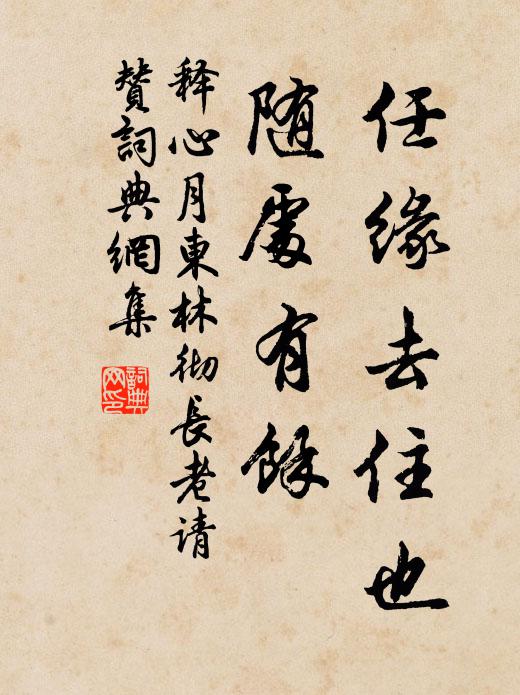 任緣去住也
隨處有餘
释心月東林彻長老请
賛詞典網集
詞典
网印